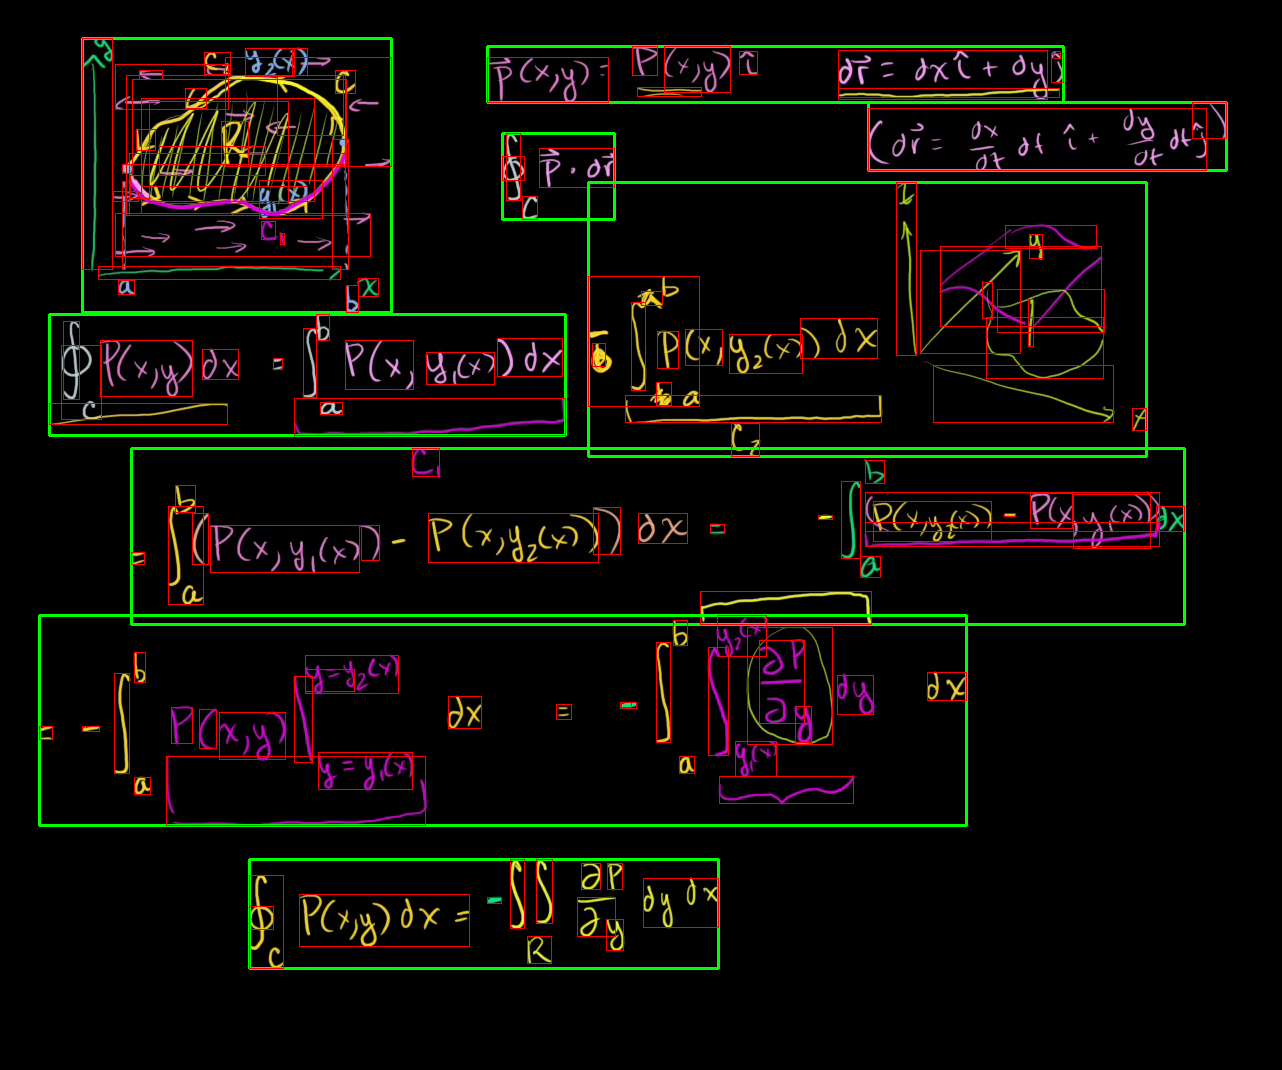 y C₂ y₂(x) C
R
y₁(x)
C₁
a b x
P⃗(x,y) = P(x,y) î    dr⃗ = dx î + dy ĵ
(dr⃗ = dx/dt dt î + dy/dt dt ĵ)
∮_C P⃗ · dr⃗
∮_C P(x,y) dx = ∫_a^b P(x, y₁(x)) dx
- ∫_a^b P(x, y₂(x)) dx
C₁
C₂
y
x
= ∫_a^b (P(x, y₁(x)) - P(x, y₂(x))) dx = - ∫_a^b (P(x, y₂(x)) - P(x, y₁(x))) dx
= - ∫_a^b P(x,y) |_{y = y₁(x)}^{y = y₂(x)} dx = - ∫_a^b ∫_{y₁(x)}^{y₂(x)} ∂P/∂y dy dx
∮_C P(x,y) dx = - ∬_R ∂P/∂y dy dx